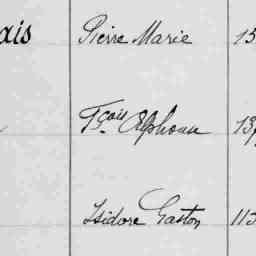 ais Pierre Marie 15
Fçois Alphonse 13
Isidore Gaston 113